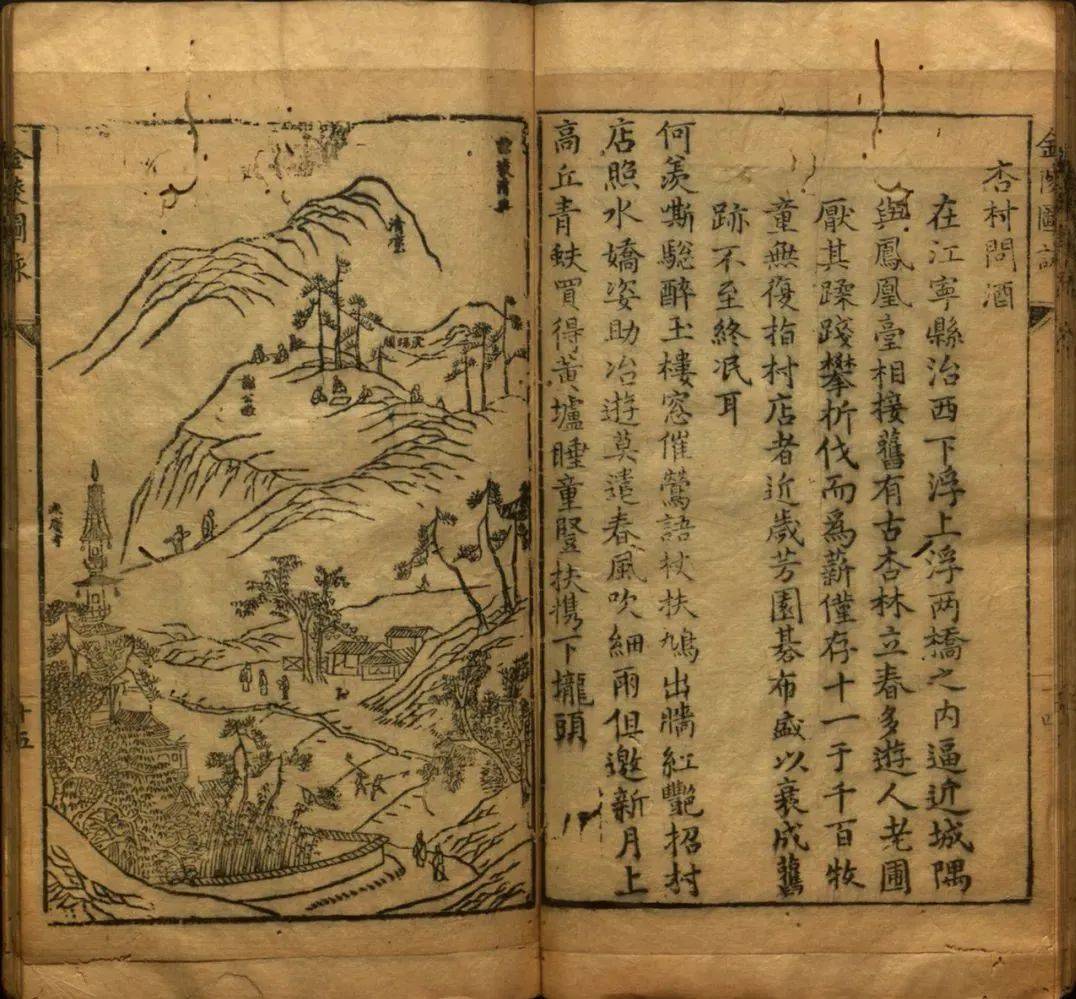 杏村問酒
在江寧縣治西下浮上浮两橋之内逼近城隅
與鳳凰臺相接舊有古杏林立春多遊人老圃
厭其蹂踐攀折伐而爲薪僅存十一于千百牧
童無復指村店者近歲芳園碁布盛以衰成舊
跡不至終泯耳
何羡嘶驄醉玉樓窓催鶯語杖扶鳩出牆紅艷招村
店照水嬌姿助冶遊莫遣春風吹細雨但邀新月上
高丘青蚨買得黃壚睡童豎扶携下壠頭
清凉臺
謝公墩
金陵圖詠
十五